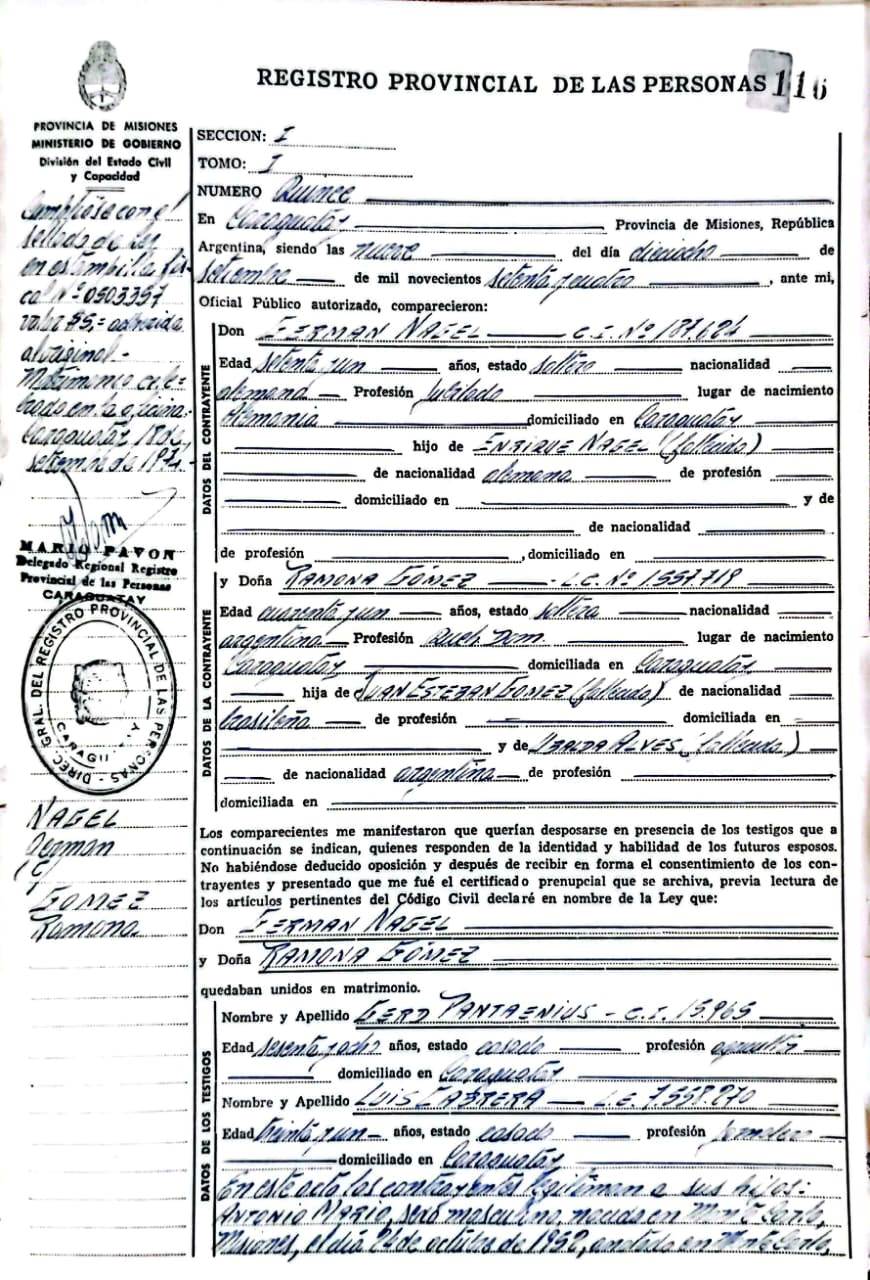 REGISTRO PROVINCIAL DE LAS PERSONAS 116
PROVINCIA DE MISIONES
MINISTERIO DE GOBIERNO
División del Estado Civil
y Capacidad
Cumplióse con el
sellado de Ley
en estampilla fis-
cal Nº 0503397
valor $5,= adherida
al original.-
Matrimonio cele-
brado en la oficina:
Caraguatay 18 de
setiembre de 1974.-
MARIO PAVON
Delegado Regional Registro
Provincial de las Personas
CARAGUATAY
DIREC. GRAL. DEL REGISTRO PROVINCIAL DE LAS PERSONAS -
CARAGU Y
NAGEL
German
c/
GOMEZ
Ramona
SECCION: I
TOMO: I
NUMERO Quince
En Caraguatay Provincia de Misiones, República
Argentina, siendo las nueve del día dieciocho de
setiembre de mil novecientos setenta y cuatro, ante mi,
Oficial Público autorizado, comparecieron:
DATOS DEL CONTRAYENTE
Don GERMAN NAGEL C.I. Nº 187.624
Edad setenta y un años, estado soltero nacionalidad
alemana Profesión Jubilado lugar de nacimiento
Alemania domiciliado en Caraguatay
hijo de ENRIQUE NAGEL (fallecido)
de nacionalidad alemana de profesión
domiciliado en y de
de nacionalidad
de profesión , domiciliado en
y Doña RAMONA GÓMEZ - L.C. Nº 1.557.718
DATOS DE LA CONTRAYENTE
Edad cuarenta y un años, estado soltera nacionalidad
argentina Profesión Queh. Dom. lugar de nacimiento
Caraguatay domiciliada en Caraguatay
hija de JUAN ESTEBAN GOMEZ (fallecido) de nacionalidad
brasileña de profesión domiciliado en
y de UBALDA ALVES (fallecida)
de nacionalidad argentina de profesión
domiciliada en
Los comparecientes me manifestaron que querían desposarse en presencia de los testigos que a
continuación se indican, quienes responden de la identidad y habilidad de los futuros esposos.
No habiéndose deducido oposición y después de recibir en forma el consentimiento de los con-
trayentes y presentado que me fué el certificado prenupcial que se archiva, previa lectura de
los artículos pertinentes del Código Civil declaré en nombre de la Ley que:
Don GERMAN NAGEL
y Doña RAMONA GÓMEZ
quedaban unidos en matrimonio.
DATOS DE LOS TESTIGOS
Nombre y Apellido GERD PANTAENIUS - C.I. 15.965
Edad sesenta y ocho años, estado casado profesión
domiciliado en Caraguatay
Nombre y Apellido LUIS CABRERA - L.E. 7.558.270
Edad treinta y un años, estado casado profesión
domiciliado en Caraguatay
En este acto los contrayentes legitiman a sus hijos:
ANTONIO MARIO, sexo masculino, nacido en Monte Carlo,
Misiones, el día 24 de octubre de 1952, anotado en Monte Carlo,